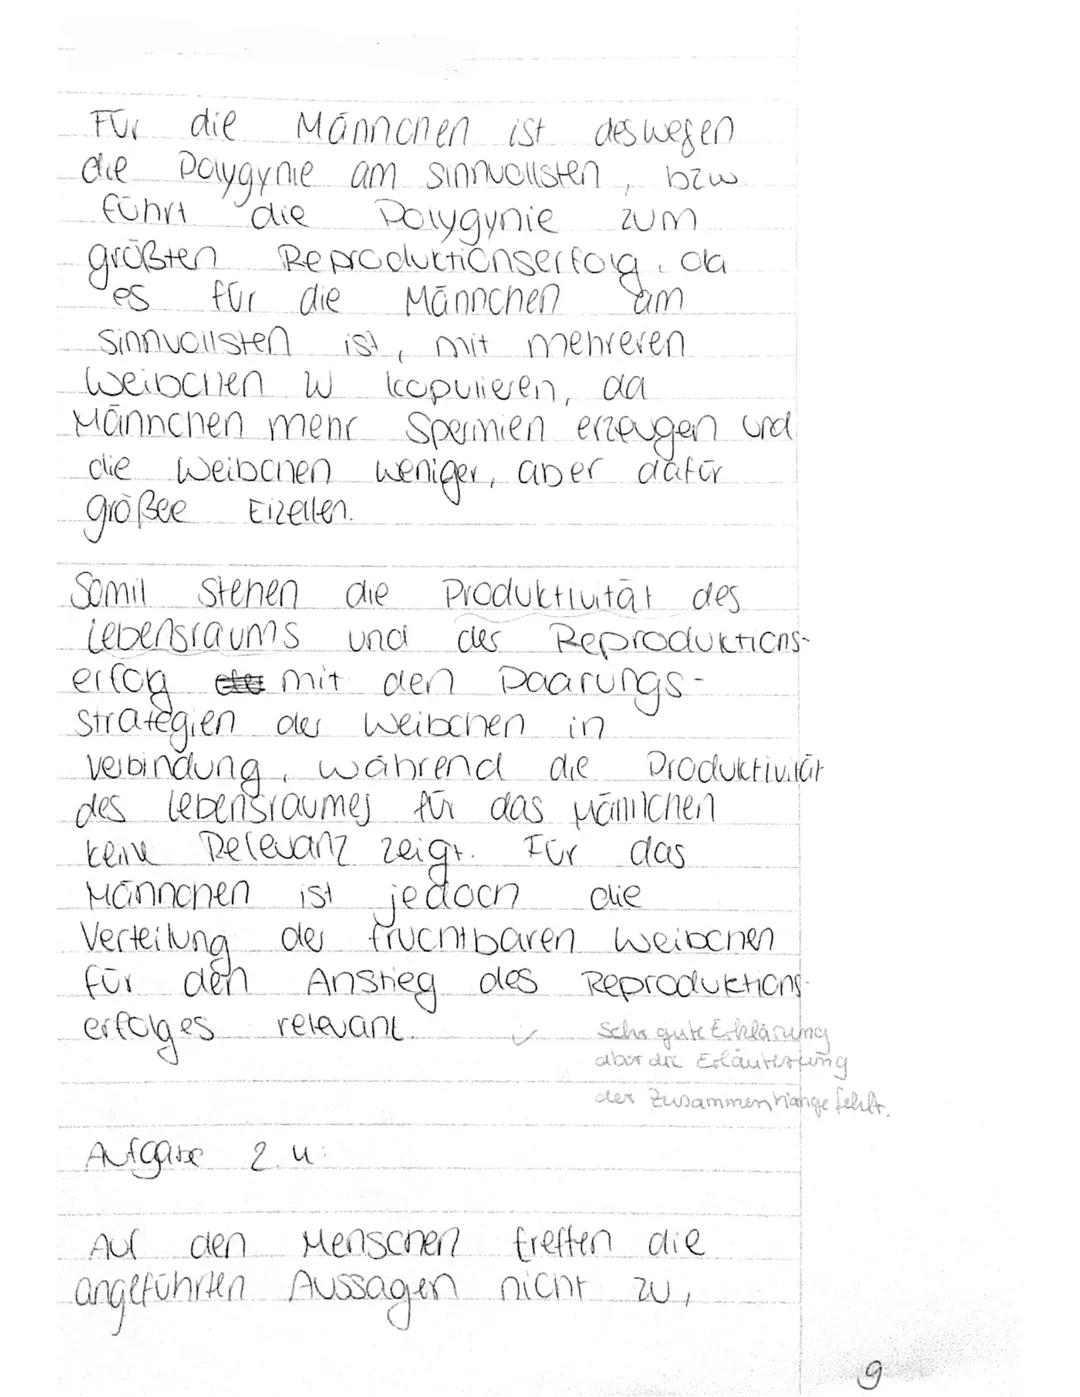 Für die Männchen ist deswegen
die Polygynie am sinnvollsten, bzw.
führt die Polygynie zum
größten Reproduktionserfolg, da
es für die Männchen am
sinnvollsten ist, mit mehreren
Weibchen zu kopulieren, da
Männchen mehr Spermien erzeugen und
die Weibchen weniger, aber dafür
größee Eizellen.
Somit stehen die Produktivität des
Lebensraums und der Reproduktions-
erfolg mit den Paarungs-
strategien der Weibchen in
Verbindung, während die Produktivität
des Lebensraumes für das Männchen
keine Relevanz zeigt. Für das
Männchen ist jedoch die
Verteilung der fruchtbaren Weibchen
für den Anstieg des Reproduktions-
erfolges relevant. ✓
Sehr gute Erklärung
aber die Erläuterung
der Zusammenhänge fehlt.
Aufgabe 2.4:
Auf den Menschen treffen die
angeführten Aussagen nicht zu,
9